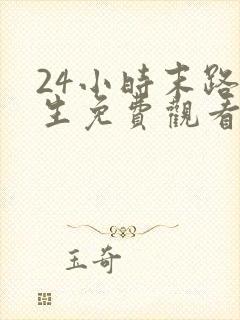 24小時末路
生免費觀看
玉奇